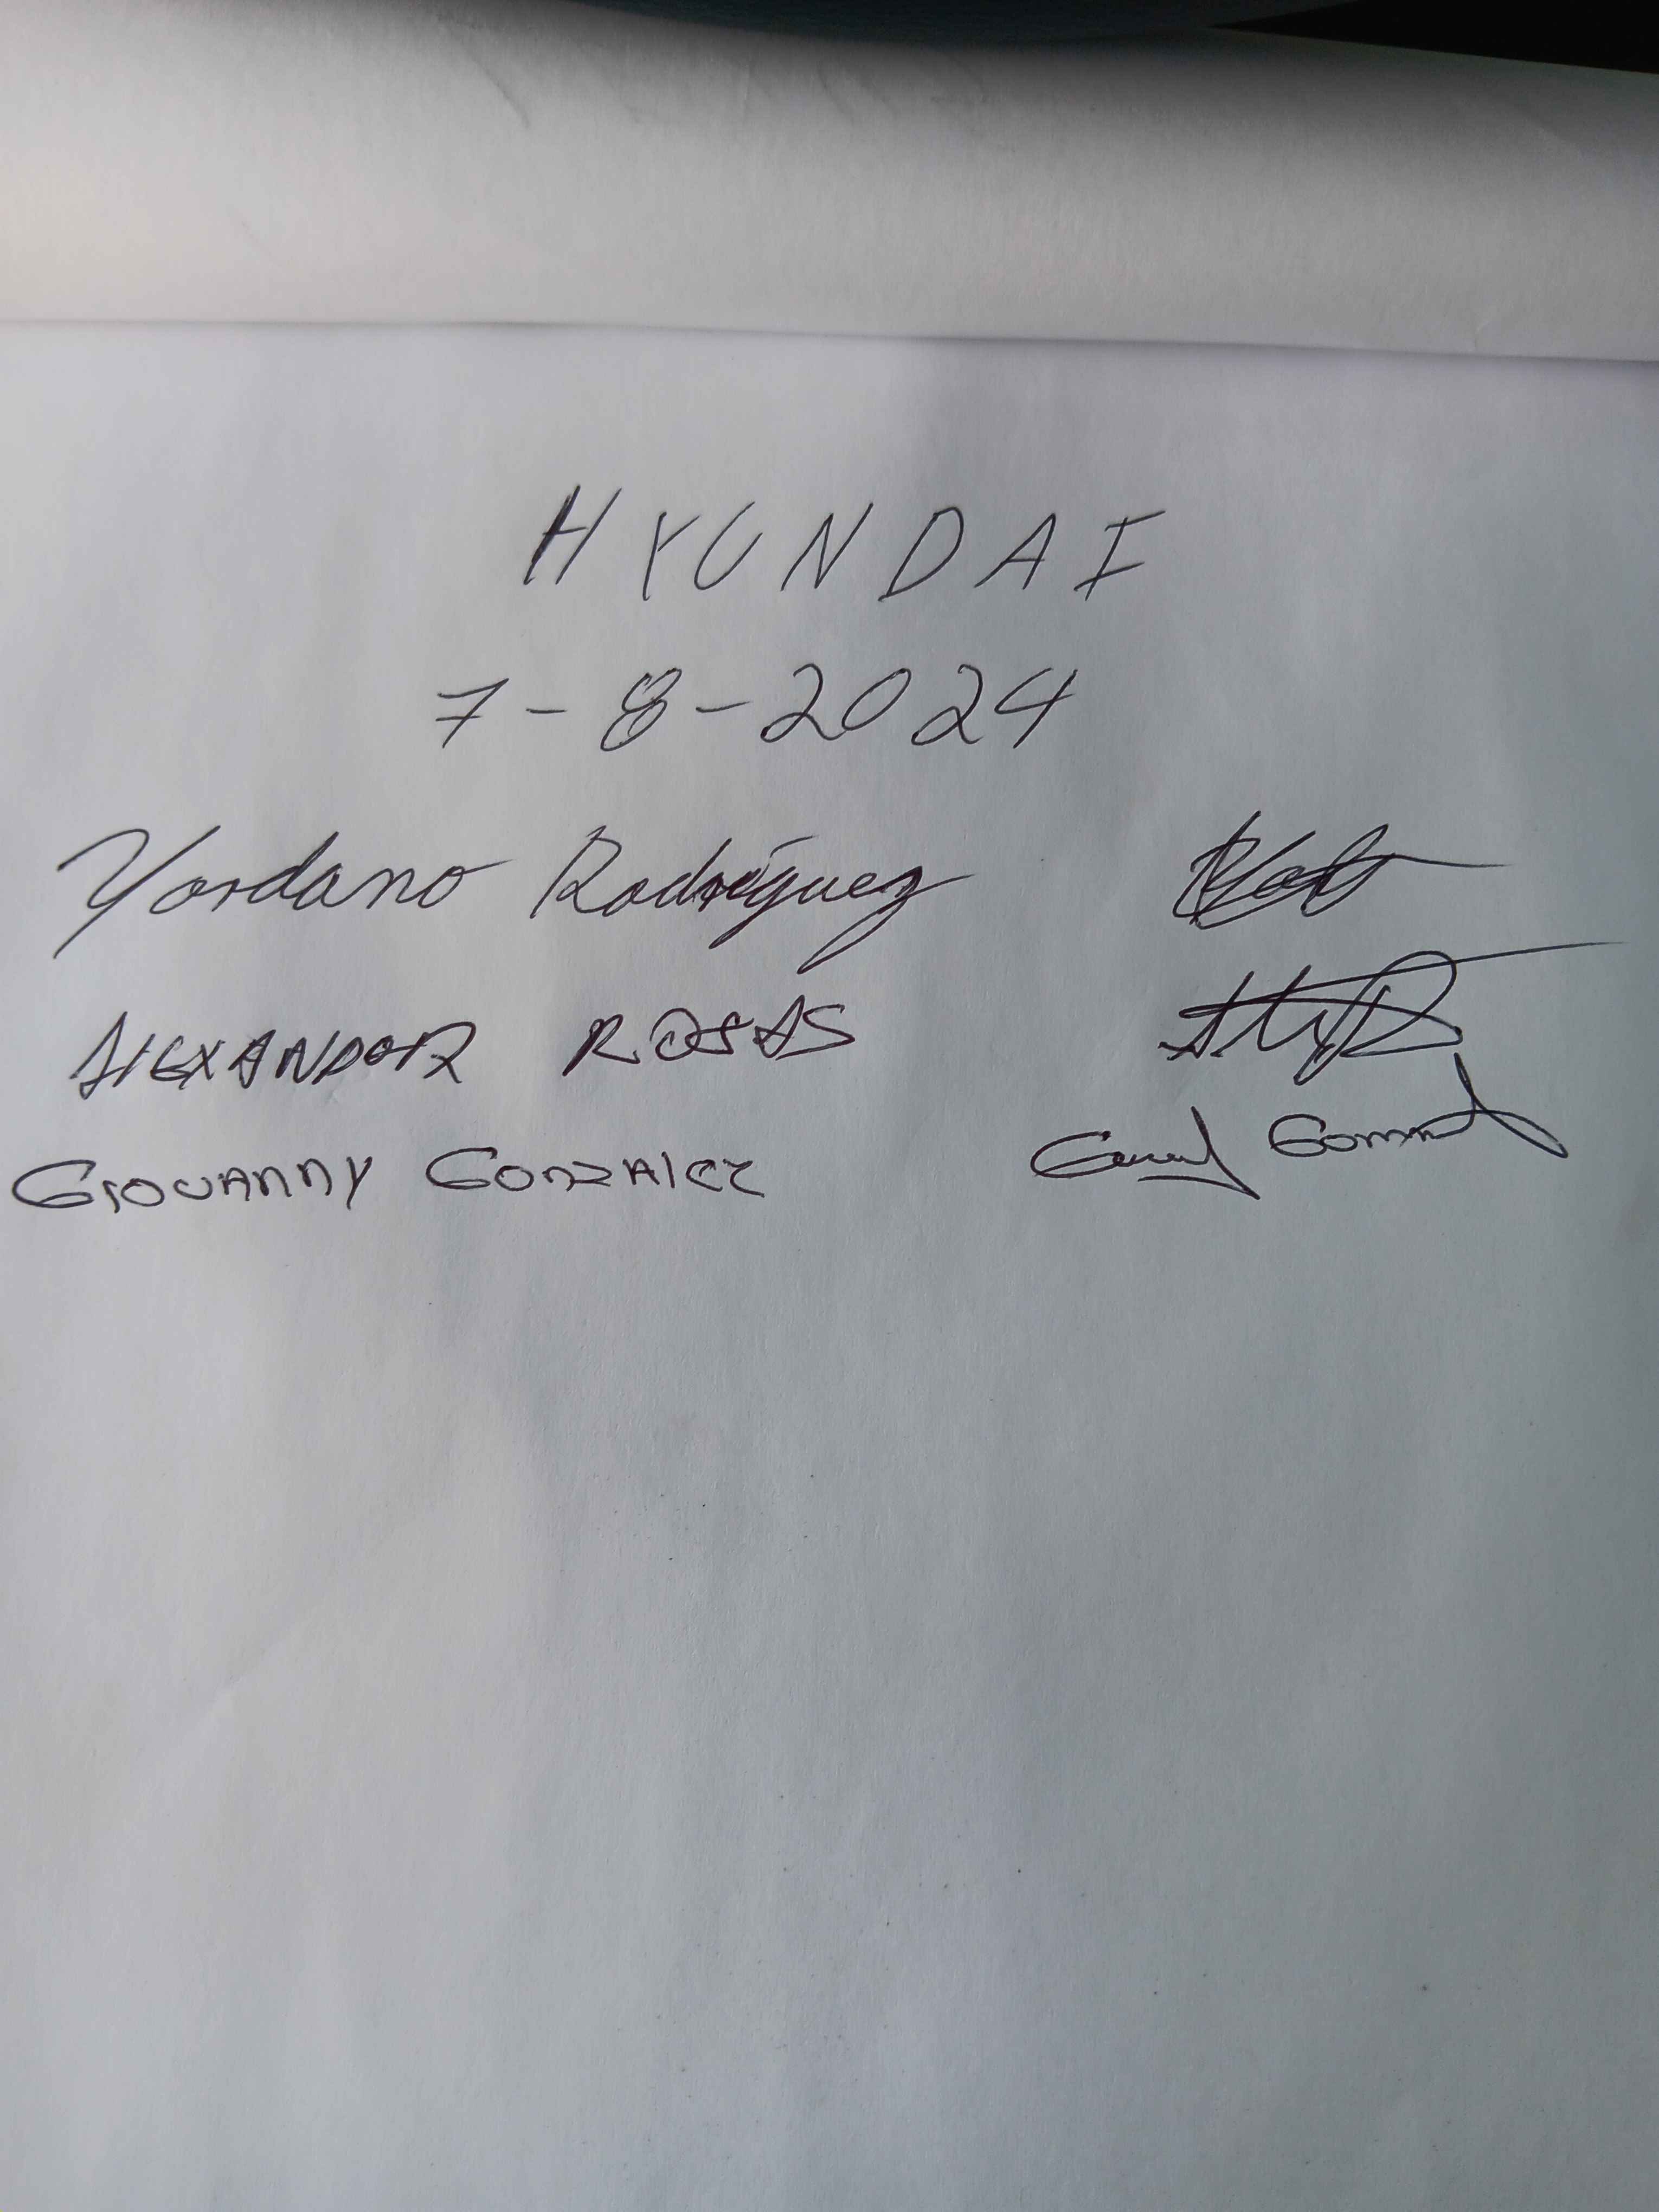 HYUNDAI
7-8-2024
Yordano Rodríguez
AlEXANDER ROSAS
GIOVANNY GONZAlEZ